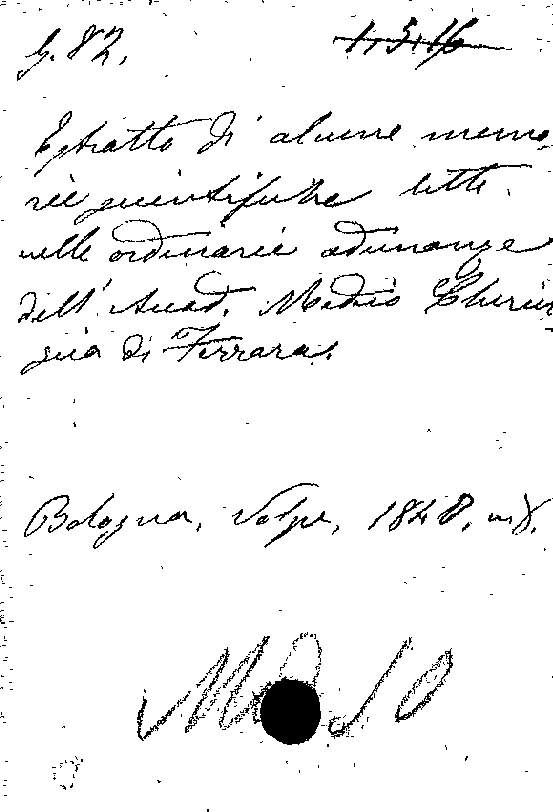 G. 82.
1.5.16
Estratto di alcune memo
rie scientifiche lette
nelle ordinarie adunanze
dell' Accad. Medico Chirur
gia di Ferrara.
Bologna, Volpe, 1840, in 8.